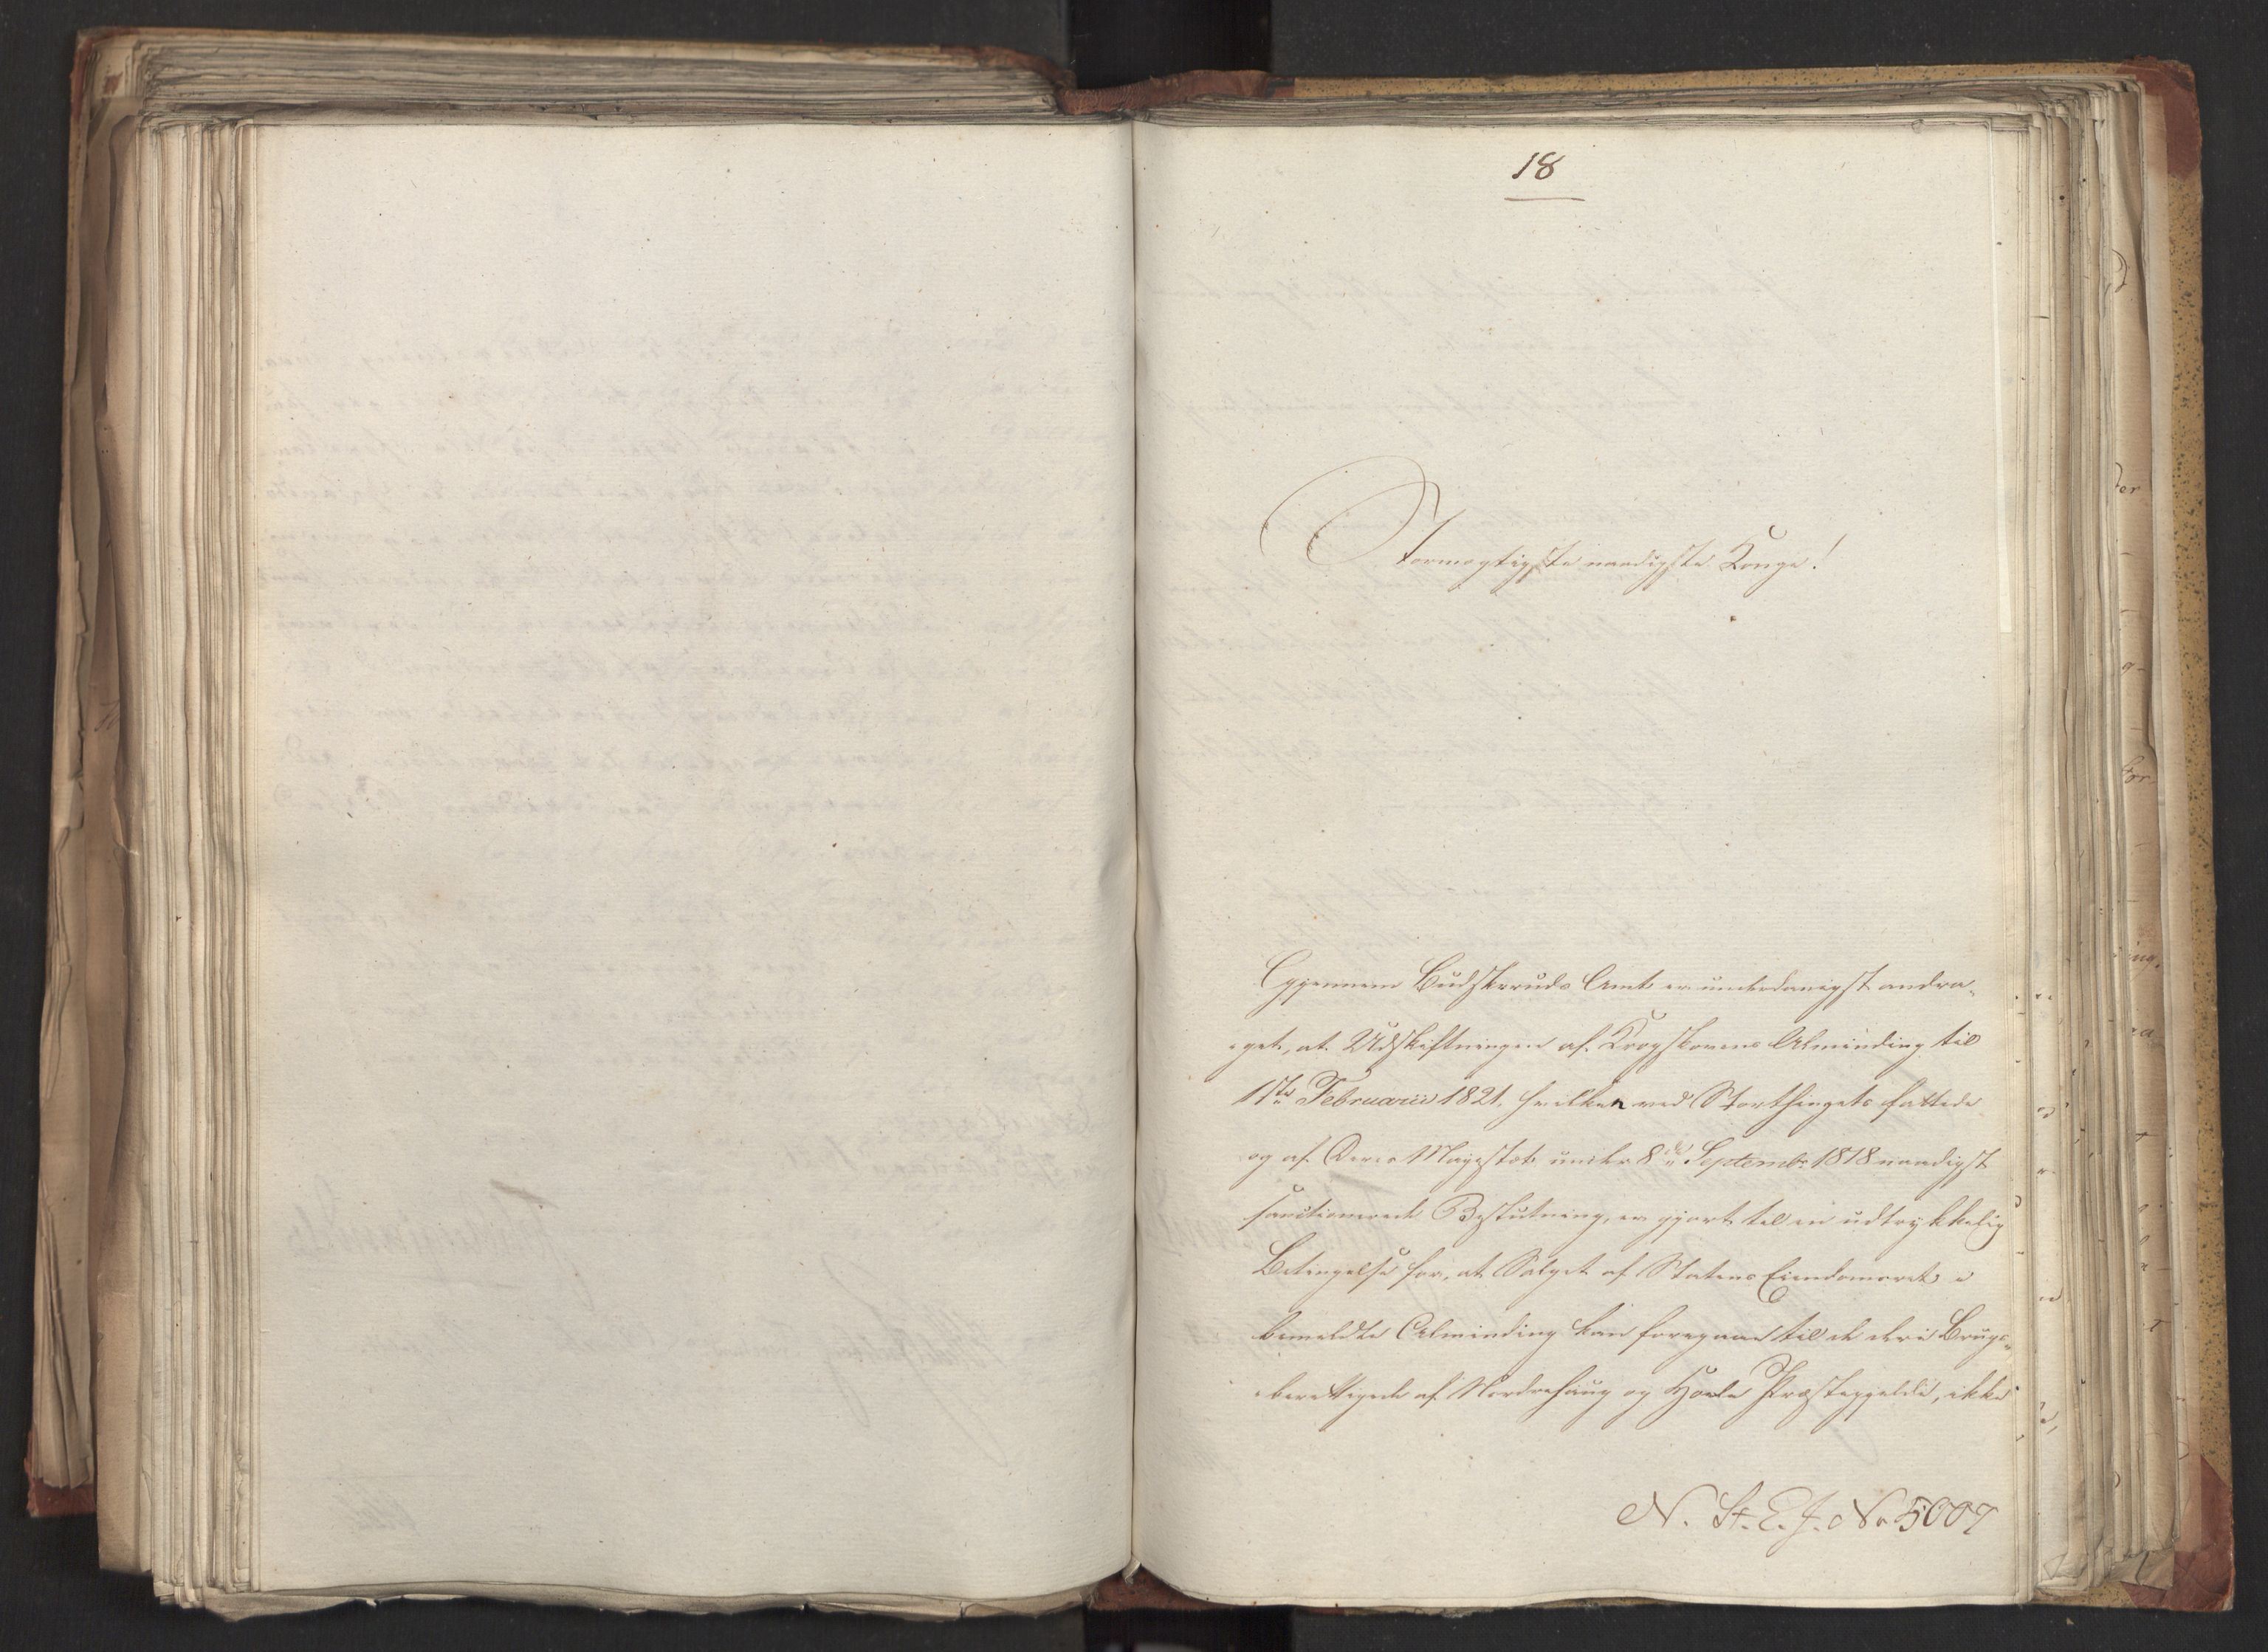 18
Stormægtigste naadigste Konge!
Igjennem Budskeruds Amt er underdanigst andra-
get, at Udskiftningen af Krogskovens Alminding til
1ste Februarii 1821, hvilken ved Storthingets fattede
og af Deres Majestæt under 8de Septembr 1818 naadigst
sanctionerede Beslutning, er gjort til en udtrykkelig
Betingelse for, at Salget af Statens Eiendomsret i
bemeldte Alminding kan foregaae til de deri Brugs-
berettigede af Norderhaug og Hole Præstegjelde, ikke
N. St. E. J. No 5007